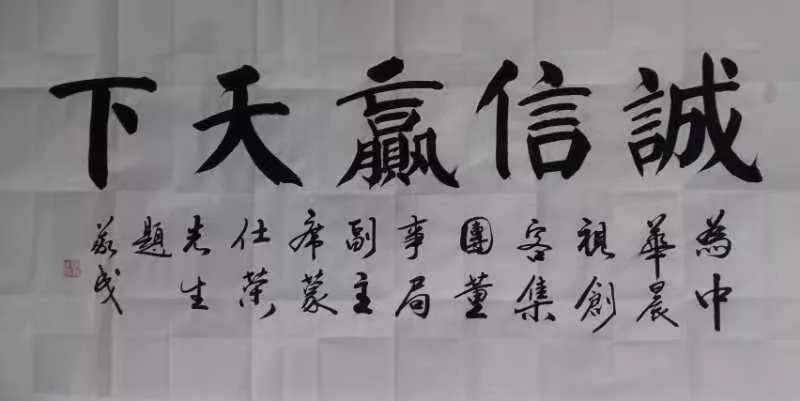 誠信贏天下
為中
華晨
視創
客集
團董
事局
副主
席蒙
仕榮
先生
題